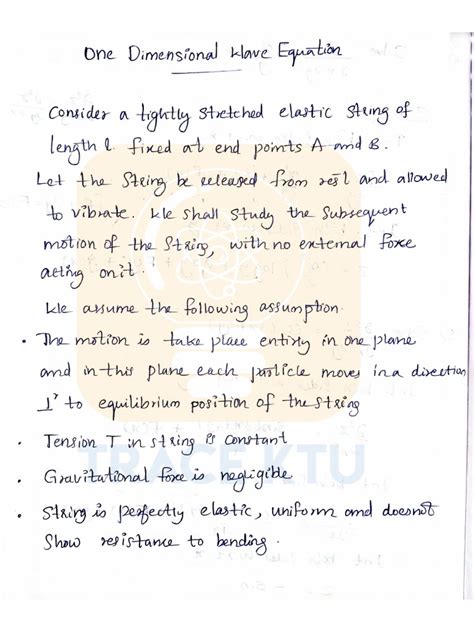 One Dimensional Wave Equation
Consider a tightly stretched elastic string of
length l fixed at end points A and B.
Let the string be released from rest and allowed
to vibrate. We shall study the subsequent
motion of the string, with no external force
acting on it.
We assume the following assumption.
• The motion is take place entirly in one plane
and in this plane each particle moves in a direction
⊥r to equilibrium position of the string
• Tension T in string is constant
TRACE KTU
• Gravitational force is negligible
• String is perfectly elastic, uniform and doesnot
show resistance to bending.